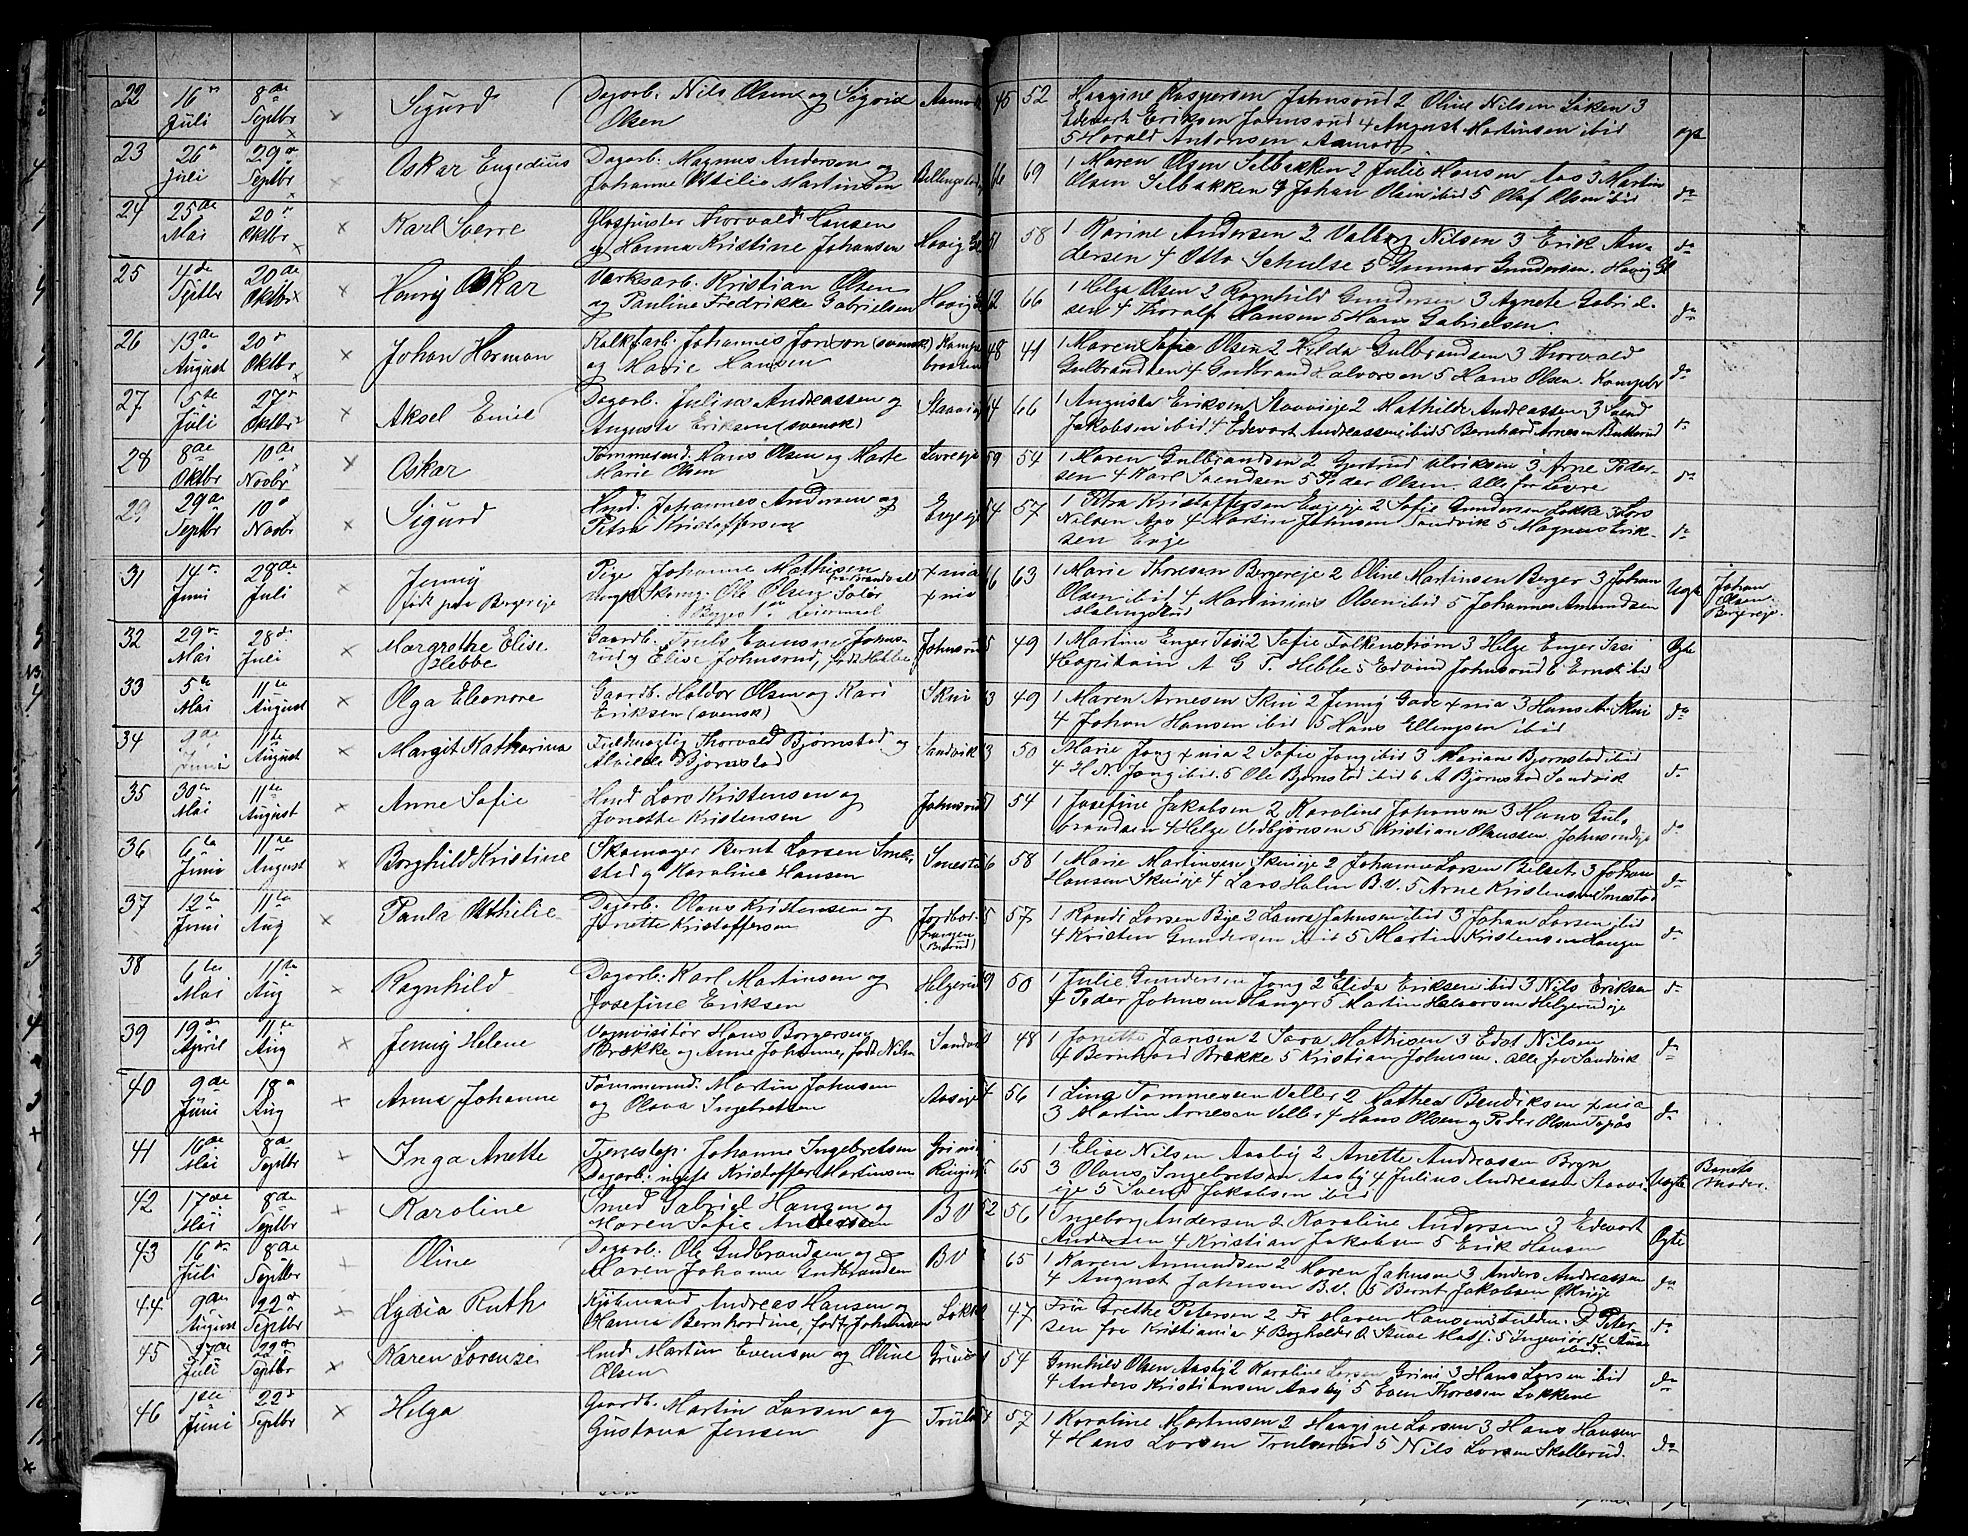 22 16de Juli 8de Septbr × Sigurd Dagarb. Nils Olsen og Sigrid Olsen 45 52 Haagine Kaspersen Johnsrud 2 Oline Nilsen Løken 3
Edevart Eriksen Johnsrud 4 August Martinsen ibid
5 Harald Antonsen Aamodt ægte
23 26de Juli 29de Septbr × Oskar Engedius Dagarb. Magnus Andersen og
Johanne Ottilie Martinsen Billingstad 69 1 Maren Olsen Selbakken 2 Julie Hansen Aas 3 Martin
Olsen Selbakken 4 Johan Olsen ibid 5 Olaf Olsen ibid do
24 25de Mai 20de Oktbr × Karl Sverre Glaspuster Thorvald Hansen
og Hanna Kristine Johansen Høvig 58 1 Karine Andersen 2 Valborg Nilsen 3 Erik An-
dersen 4 Otto Schulse 5 Gunnar Gundersen. Høvig Gl do
25 4de Septbr 20de Oktbr × Henry Oskar Værkesarb. Kristian Olsen
og Pauline Fredrikke Gabrielsen Høvig 62 66 1 Helga Olsen 2 Ragnhild Gundersen 3 Agnete Gabriel-
sen 4 Thoralf Hansen 5 Hans Gabrielsen do
26 13de August 20de Oktbr × Johan Herman Kalkfarb. Johannes Jonson (svensk)
og Marie Hansen Kampebraaten 48 41 1 Maren Sofie Olsen 2 Hilda Gulbrandsen 3 Thorvald
Gulbrandsen 4 Gudbrand Halvorsen 5 Hans Olsen. Kampebr do
27 5te Juli 27de Oktbr × Aksel Emil Dagarb. Julius Andreassen og
Augusta Eriksen (svensk) 64 66 1 Augusta Eriksen Staverie 2 Mathilde Andreassen 3 Svend
Jakobsen ibid. 4 Edevart Andreassen ibid 5 Bernhard Arnesen Butterud do
28 8de Oktbr 10de Novbr × Oskar Tømmermd. Hans Olsen og Marte
Marie Olsen Levreeje 59 54 1 Maren Gulbrandsen 2 Gertrud Ulriksen 3 Arne Peder-
sen 4 Karl Svendsen 5 Peder Olsen. Alle fra Levre do
29 29de Septbr 10de Novbr × Sigurd Hmd. Johannes Andersen og
Petra Kristoffersen Evjeeje 54 57 1 Petra Kristoffersen Evjeeje 2 Sofie Gundersen Løkke 3 Lars
Nilsen Aas 4 Martin Johnsen Sandvik 5 Magnus Erik-
sen Evje do
31 14de Juni 28de Juli × Jenny
født paa Bergereje Pige Johanne Mathisen
Ungk. Skomg. Ole Olsen Solør
Begges 1ste Leiermaal × nia
× nia 46 63 1 Marie Thoresen Bergereje 2 Oline Martinsen Berger 3 Johan
Olsen ibid 4 Martinius Olsen ibid 5 Johannes Amundsen
Malingstad Uægte Johan
Olsen
Bergereje.
32 29de Mai 28de Juli × Margrethe Elise
Hebbe Gaardb. Truls Evensen Johns-
rud og Elise Johnsrud, født Hebbe Johnsrud 49 1 Martine Enger Issi 2 Sofie Falkenstrøm 3 Helge Enger Issi
4 Capitain A G T. Hebbe 5 Edvind Johnsrud 6 Ernst ibid Ægte
33 5te Mai 11te August × Olga Eleonore Gaardb. Haldor Olsen og Kari
Eriksen (svensk) Skui 49 1 Maren Arnesen Skui 2 Jenny Gade × nia 3 Hans A. Skui
4 Johan Hansen ibid 5 Hans Ellingsen ibid do
34 9de Juni 11te August × Margit Katharina Fuldmægtig Thorvald Bjørnstad og
Alvilde Bjørnstad Sandvik 50 Marie Jong × nia 2 Sofie Jong ibid 3 Mariane Bjørnstad ibid
4 H N. Jong ibid. 5 Ole Bjørnstad ibid 6 A Bjørnstad Sandvik do
35 30te Mai 11te August × Anne Sofie Hmd Lars Kristensen og
Jonette Kristensen Johnsrud 54 1 Josefine Jakobsen 2 Karoline Johansen 3 Hans Gul-
brandsen 4 Helge Vidbjørnsen 5 Kristian Olaussen. Johnsrudeje do
36 6te Juni 11te August × Borghild Kristine Skomager Bernt Larsen Sme-
stad og Karoline Hansen Smestad 58 1 Marie Martinsen Skuieje 2 Johanne Larsen Bilset 3 Johan
Hansen Skuieje 4 Lars Holm B.V. 5 Arne Kristensen Smestad do
37 12te Juni 11te Aug × Paula Othilie Dagarb. Olaus Kristensen og
Jonette Kristoffersen 57 1 Randi Larsen Bye 2 Laura Johnsen ibid 3 Johan Larsen ibid
4 Kristen Gundersen ibid 5 Martin Kristensen Haugen do
38 6te Mai 11te Aug × Ragnhild Dagarb. Karl Martinsen og
Josefine Eriksen Helgerud 50 1 Julie Gundersen Jong 2 Elida Eriksen ibid 3 Nils Eriksen
4 Peder Johnsen Hanger 5 Martin Halvorsen Helgerudeje do
39 19de April 11te Aug × Jenny Helene Vognvisitør Hans Borgersen
Brække og Anne Johanne, født Nilsen Sandvik 48 1 Jonette Jansen 2 Sara Mathisen 3 Edv. Nilsen
4 Bernhard Brække 5 Kristian Johnsen. Alle fra Sandvik do
40 9de Juni 18de Aug × Anna Johanne Tømmermd. Martin Johnsen
og Olava Ingebretsen Aaseje 56 1 Lina Tommesen Valler 2 Mathea Bendiksen × nia
3 Martin Arnesen Valler 4 Hans Olsen og Peder Olsen Topaas do
41 16de Mai 8de Septbr × Inga Anette Tjenestep. Johanne Ingebretsen
Dagarb. ugift Kristoffer Martinsen Grini
Ringerike 65 1 Elise Nilsen Aasby 2 Anette Andreassen Bryn
3 Olaus Ingebretsen Aasby 4 Julius Andreassen Staavi-
eje 5 Svend Jakobsen ibid Uægte Barnets
Moder.
42 17de Mai 8de Septbr × Karoline Smed Gabriel Hansen og
Maren Sofie Andersen BV 52 56 1 Ingeborg Andersen 2 Karoline Andersen 3 Edevart
Andersen 4 Kristian Jakobsen 5 Erik Hansen Ægte
43 16de Juli 8de Septbr Oline Dagarb. Ole Gudbrandsen og
Maren Johanne Gudbrandsen BV 65 1 Karen Amundsen 2 Maren Johnsen 3 Anders Andreassen
4 August Johnsen B.V. 5 Bernt Jakobsen Økrieje do
44 9de August 22de Septbr × Lydia Ruth Kjøbmand Andreas Hansen og
Hanna Bernhardine, født Johansen Løkke 47 Frü Grethe Petersen 2 Fr Maren Hansen 3 Fuldm. P Peter-
sen fra Kristiania 4 Bogholder O. Stuve 5 Ingeniør K. Stuve
ibid. do
45 17de Juli 22de Septbr × Karen Lorenze Hmd. Martin Evensen og Oline
Olsen Grini 54 Gunhild Olsen Aasby 2 Karoline Larsen Grini 3 Hans Larsen ibid
4 Anders Kristiansen Aasby 5 Even Thoresen Løkkene do
46 1ste Juni 22de Septbr × Helga Gaardb. Martin Larsen og
Gustava Jensen 57 1 Karoline Martinsen 2 Haagine Larsen 3 Hans Hansen
4 Hans Larsen Trulserud 5 Nils Larsen Skollerud. do